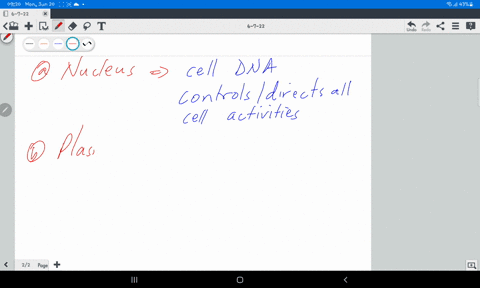 09:20 Mon, Jun 20
43%
6-7-22
6-7-22
T
Undo
Redo
ⓐ Nucleus ⇒ cell DNA
controls/directs all
cell activities
ⓑ Plas
2/2 Page +